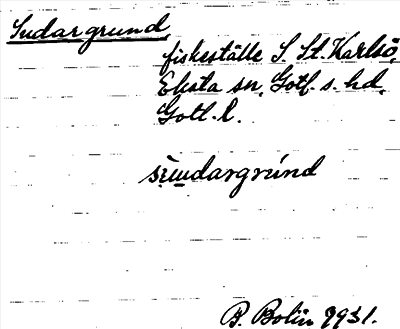 Sudargrund,
fiskeställe S. St. Karlsö,
Eksta sn, Gotl. s. hd,
Gotl. l.
sùudargrúnd
B. Bolin 1931.